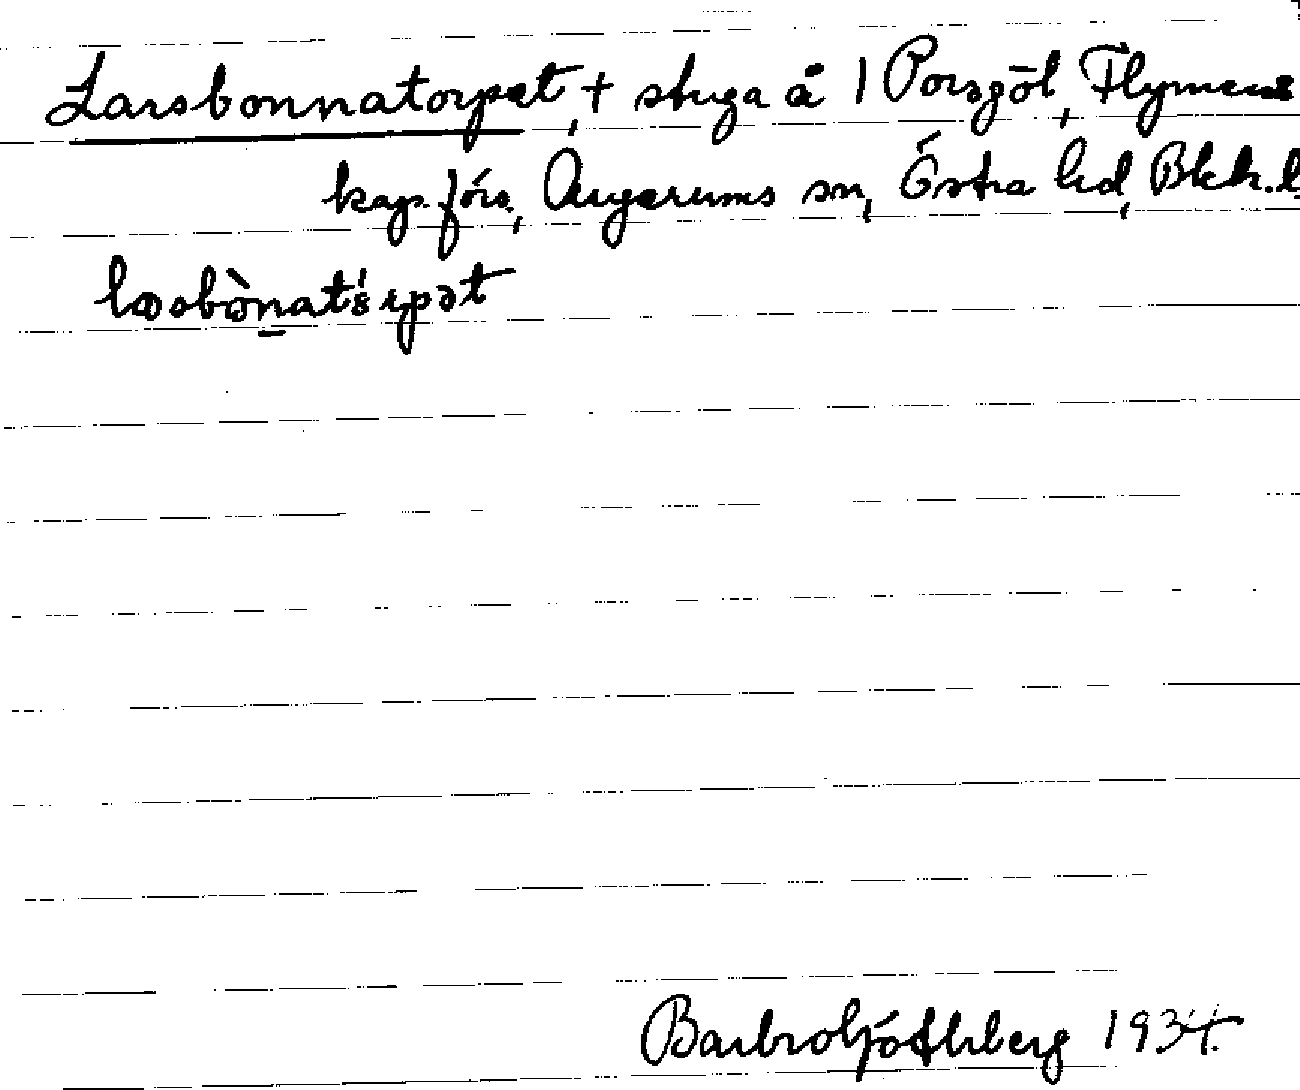 Larsbonnatorpet, + stuga å 1 Porsgöl, Flymens
kap. förs., Augerums sn, Östra hd, Blek. l.
lɑsbònatɷ́rpət
Barbro Göthberg 1934.